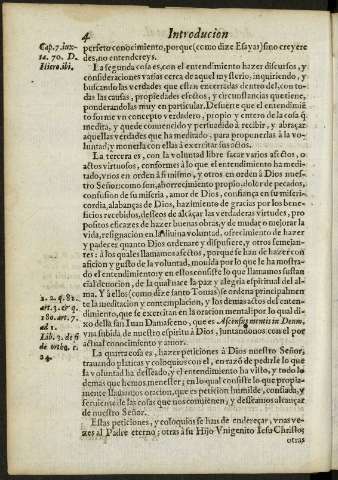 4 Introducion
Cap. 7. iux-
ta. 70. D.
Hiero. ibi.
perfeto conocimiento, porque (como dize Esayas) sino creyere
des, no entendereys.
La segunda cosa es, con el entendimiento hazer discursos, y
consideraciones varias cerca de aquel mysterio, inquiriendo, y
buscando las verdades que estan encerradas dentro del, con to-
das las causas, propiedades efetos, y circunstancias que tiene,
ponderandolas muy en particular. Desuerte que el entendimiē
to forme vn concepto verdadero, propio y entero de la cosa q̃
medita, y quede conuencido y persuadido à recibir, y abraçar
aquellas verdades que ha meditado, para proponerlas à la vo-
luntad, y mouerla con ellas à exercitar sus actos.
La tercera es, con la voluntad libre sacar varios afectos, o
actos virtuosos, conformes à lo que el entendimiento ha medi-
tado, vnos en orden à si mismo, y otros en orden à Dios nues-
tro Señor: como son, aborrecimiento propio, dolor de pecados,
confusion de su miseria, amor de Dios, confiança en su miseri-
cordia, alabanças de Dios, hazimiento de gracias por los bene-
ficios recebidos, desseos de alcāçar las verdaderas virtudes, pro
positos eficazes de hazer buenas obras, y de mudar o mejorar la
vida, resignacion en la diuina voluntad, ofrecimiento de hazer
y padecer quanto Dios ordenare y dispusiere, y otros semejan-
tes: à los quales llamamos afectos, porque se han de hazer con
aficion y gusto de la voluntad, mouida por lo que le ha mostra-
do el entendimiento: y en estos consiste lo que llamamos sustan
cial deuocion, de la qual nace la paz y alegria espiritual del al-
ma. Y à ellos (como dize santo Tomas) se ordena principalmen
te la meditacion y contemplacion, y los demas actos del enten-
dimiento, que se exercitan en la oracion mental: por lo qual di-
xo della san Iuan Damasceno, que es Ascensus mentis in Deum,
vna subida de nuestro espiritu à Dios, juntandonos con el por
actual conocimiento y amor.
2. 2. q. 82.
art. 3. & q.
180. art. 7.
ad 1.
Lib. 3. de fi
de ortho. c.
24.
La quarta cosa es, hazer peticiones à Dios nuestro Señor,
trauando platicas y coloquios con el, en razō de pedirle lo que
la voluntad ha desseado, y el entendimiento ha visto, y todo lo
demas que hemos menester; en lo qual consiste lo que propia-
mente llamamos oracion, que es peticion humilde, confiada, y
feruiente de las cosas que nos conuienen, y desseamos alcançar
de nuestro Señor.
Estas peticiones, y coloquios se han de endereçar, vnas ve-
zes al Padre eterno; otras à su Hijo Vnigenito Iesu Christo;
otras